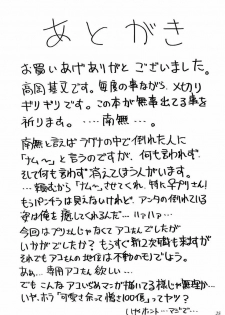 あとがき
お買いあげありがとうございました。
高岡基文です。毎度の事ながら、〆切り
ギリギリです。この本が無事出てる事を
祈ります。…… 南無…。
南無と言えば ラグナの中で倒れた人に
「ナム〜」と言うのですが、何も言わず
そして何も言わず消えてほうがいます。
…… 頼むから「ナム〜」させてくれ、特に辛プリさん!
もうパンチラは見えないけれど、アンタの倒れている
姿は俺を癒してくれるんだ… ハァハァ…
今回はプリさんじゃなくてアコさんでしたが
いかがでしたか？ もうすぐ新2次職も来ますが
それでもアコさんの地位は不動のモノでしょう。
あぁ… 専用アコさん欲しい…
でも こんなアコいぢめマンガ描いてる様じゃ無理か…
いや、ホラ「可愛さ余って憎さ100倍」ってヤツ？
(いや、ホント… マジで…
25